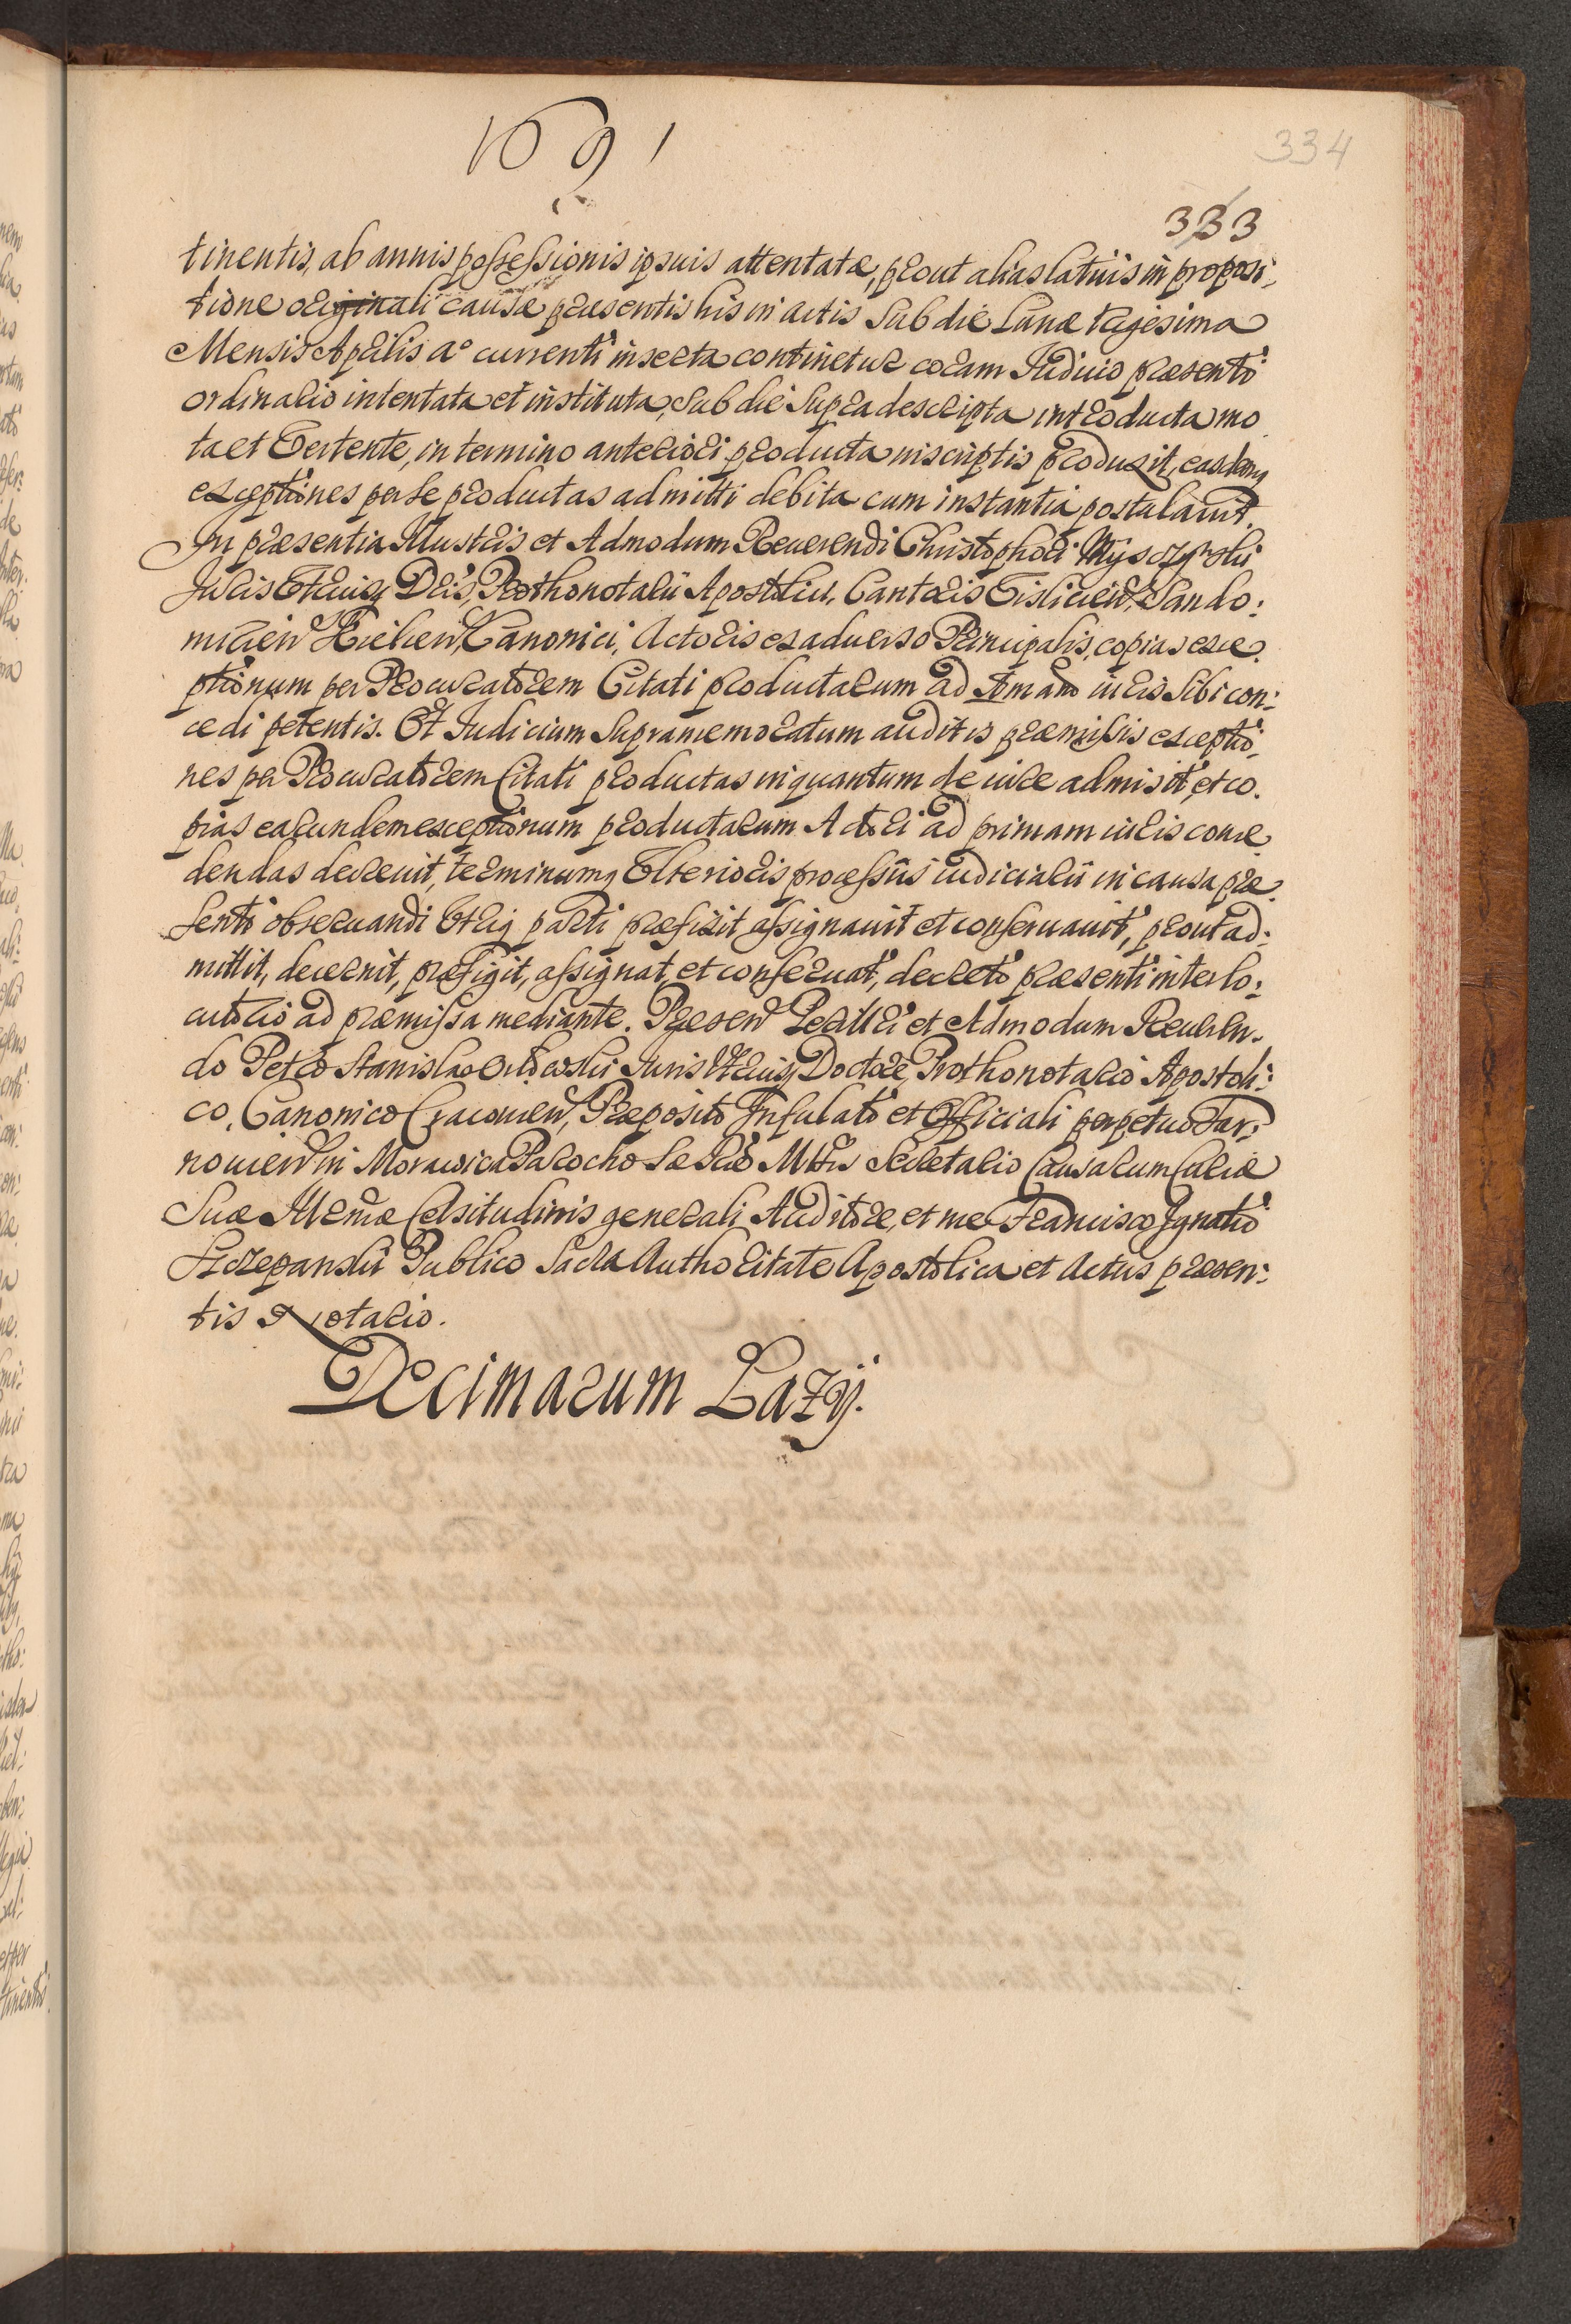 1691
334
333
tinentis, ab annis possessionis ipsius attentatæ, prout alias latius in proposi:
tione originali causæ præsentis his in actis sub die Lunæ trigesima
Mensis Aprilis a° currenti inserta continetur coram Iudicio præsenti
ordinario intentata et instituta, sub die supra descripta introducta mo
ta et Vertente, in termino anteriori producta in scriptis produxit, easdemq
exceptiones per se productas admitti debita cum instantia postulavit.
In præsentia Illustris et Admodum Reuerendi Christophori
Iuris Vtriusq Dris, Prothonotarii Apostolici, Cantoris Vislicien, Sando:
mirien Kielcen, Canonici, Actoris ex aduerso Principalis, copias exce
ptionum per Procuratorem Citati productarum ad iuris sibi con:
cedi petentis. Et Iudicium supramemoratum auditis præmissis exceptio
nes per Procuratorem Citati productas inquantum de iure admisit, et co.
pias earundem exceptionum productarum Actori ad primam iuris conce
dendas decreuit, terminumq Vlterioris processus iudiciarii in causa præ
senti obseruandi Vtriq parti præfixit assignauit et conseruauit, prout ad:
mittit, decernit, præfigit, assignat, et conseruat, decreto præsenti interlo:
cutorio ad præmissa mediante. Præsen Perilltri et Admodum Reueren.
do Petro Stanislao Iuris Vtriusq Doctore, Prothonotario Apostoli:
co, Canonico Cracouien, Præposito Infulato et Officiali perpetuo Tar:
nouien in Morawica Parocho Sæ Ræ Mttis Secretario Causarum Curiæ
Suæ Illrmæ Celsitudinis generali Auditore, et me Francisco Ignatio
Szczepanski Publico Sacra Authoritate Apostolica et Actus præsen:
tis Notario.
Decimarum Łazÿ.